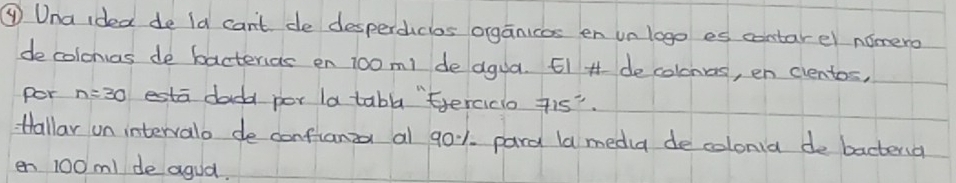 ④ Una idea de la cant de desperdicios orgánicos en un lago es contar el número
de colonias de bacterias en 100 ml de agua. El # de colonias, en cientos,
por n=30 está dada por la tabla "Ejercicio 715".
Hallar un intervalo de confianza al 90% para la media de colonia de bacteria
en 100 ml de agua.